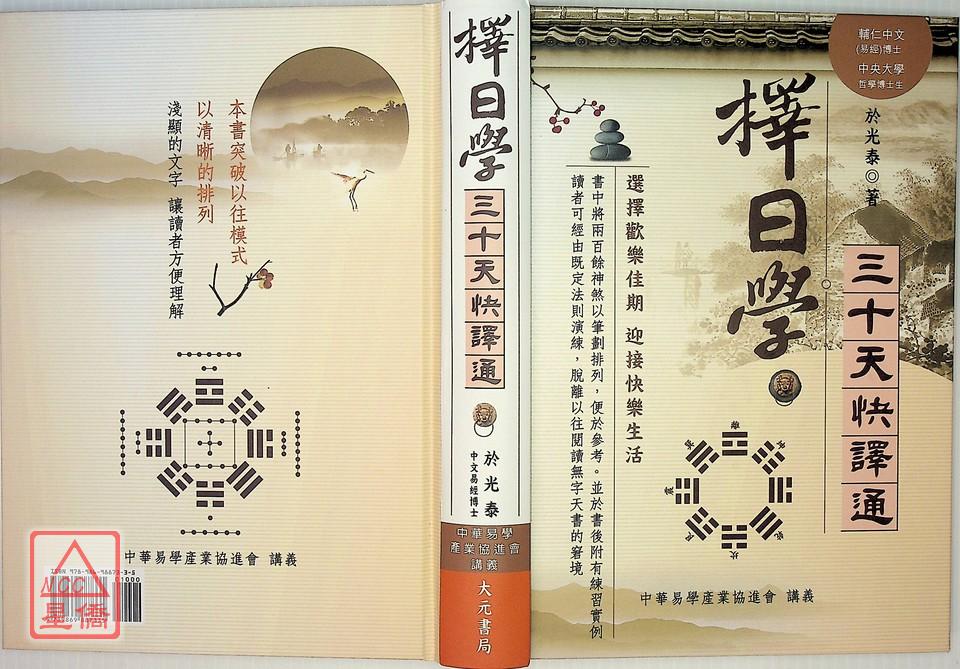 輔仁中文
(易經)博士
中央大學
哲學博士生
於光泰◎著
擇日學
三十天快譯通
選擇歡樂佳期 迎接快樂生活
書中將兩百餘神煞以筆劃排列，便於參考。並於書後附有練習實例
讀者可經由既定法則演練，脫離以往閱讀無字天書的窘境
離
震
坎
乾
兌
中華易學產業協進會 講義
擇日學
三十天快譯通
於光泰
中文易經博士
中華易學
產業協進會
講義
大元書局
本書突破以往模式
以清晰的排列
淺顯的文字 讓讀者方便理解
中華易學產業協進會 講義
01000
NCC
星僑